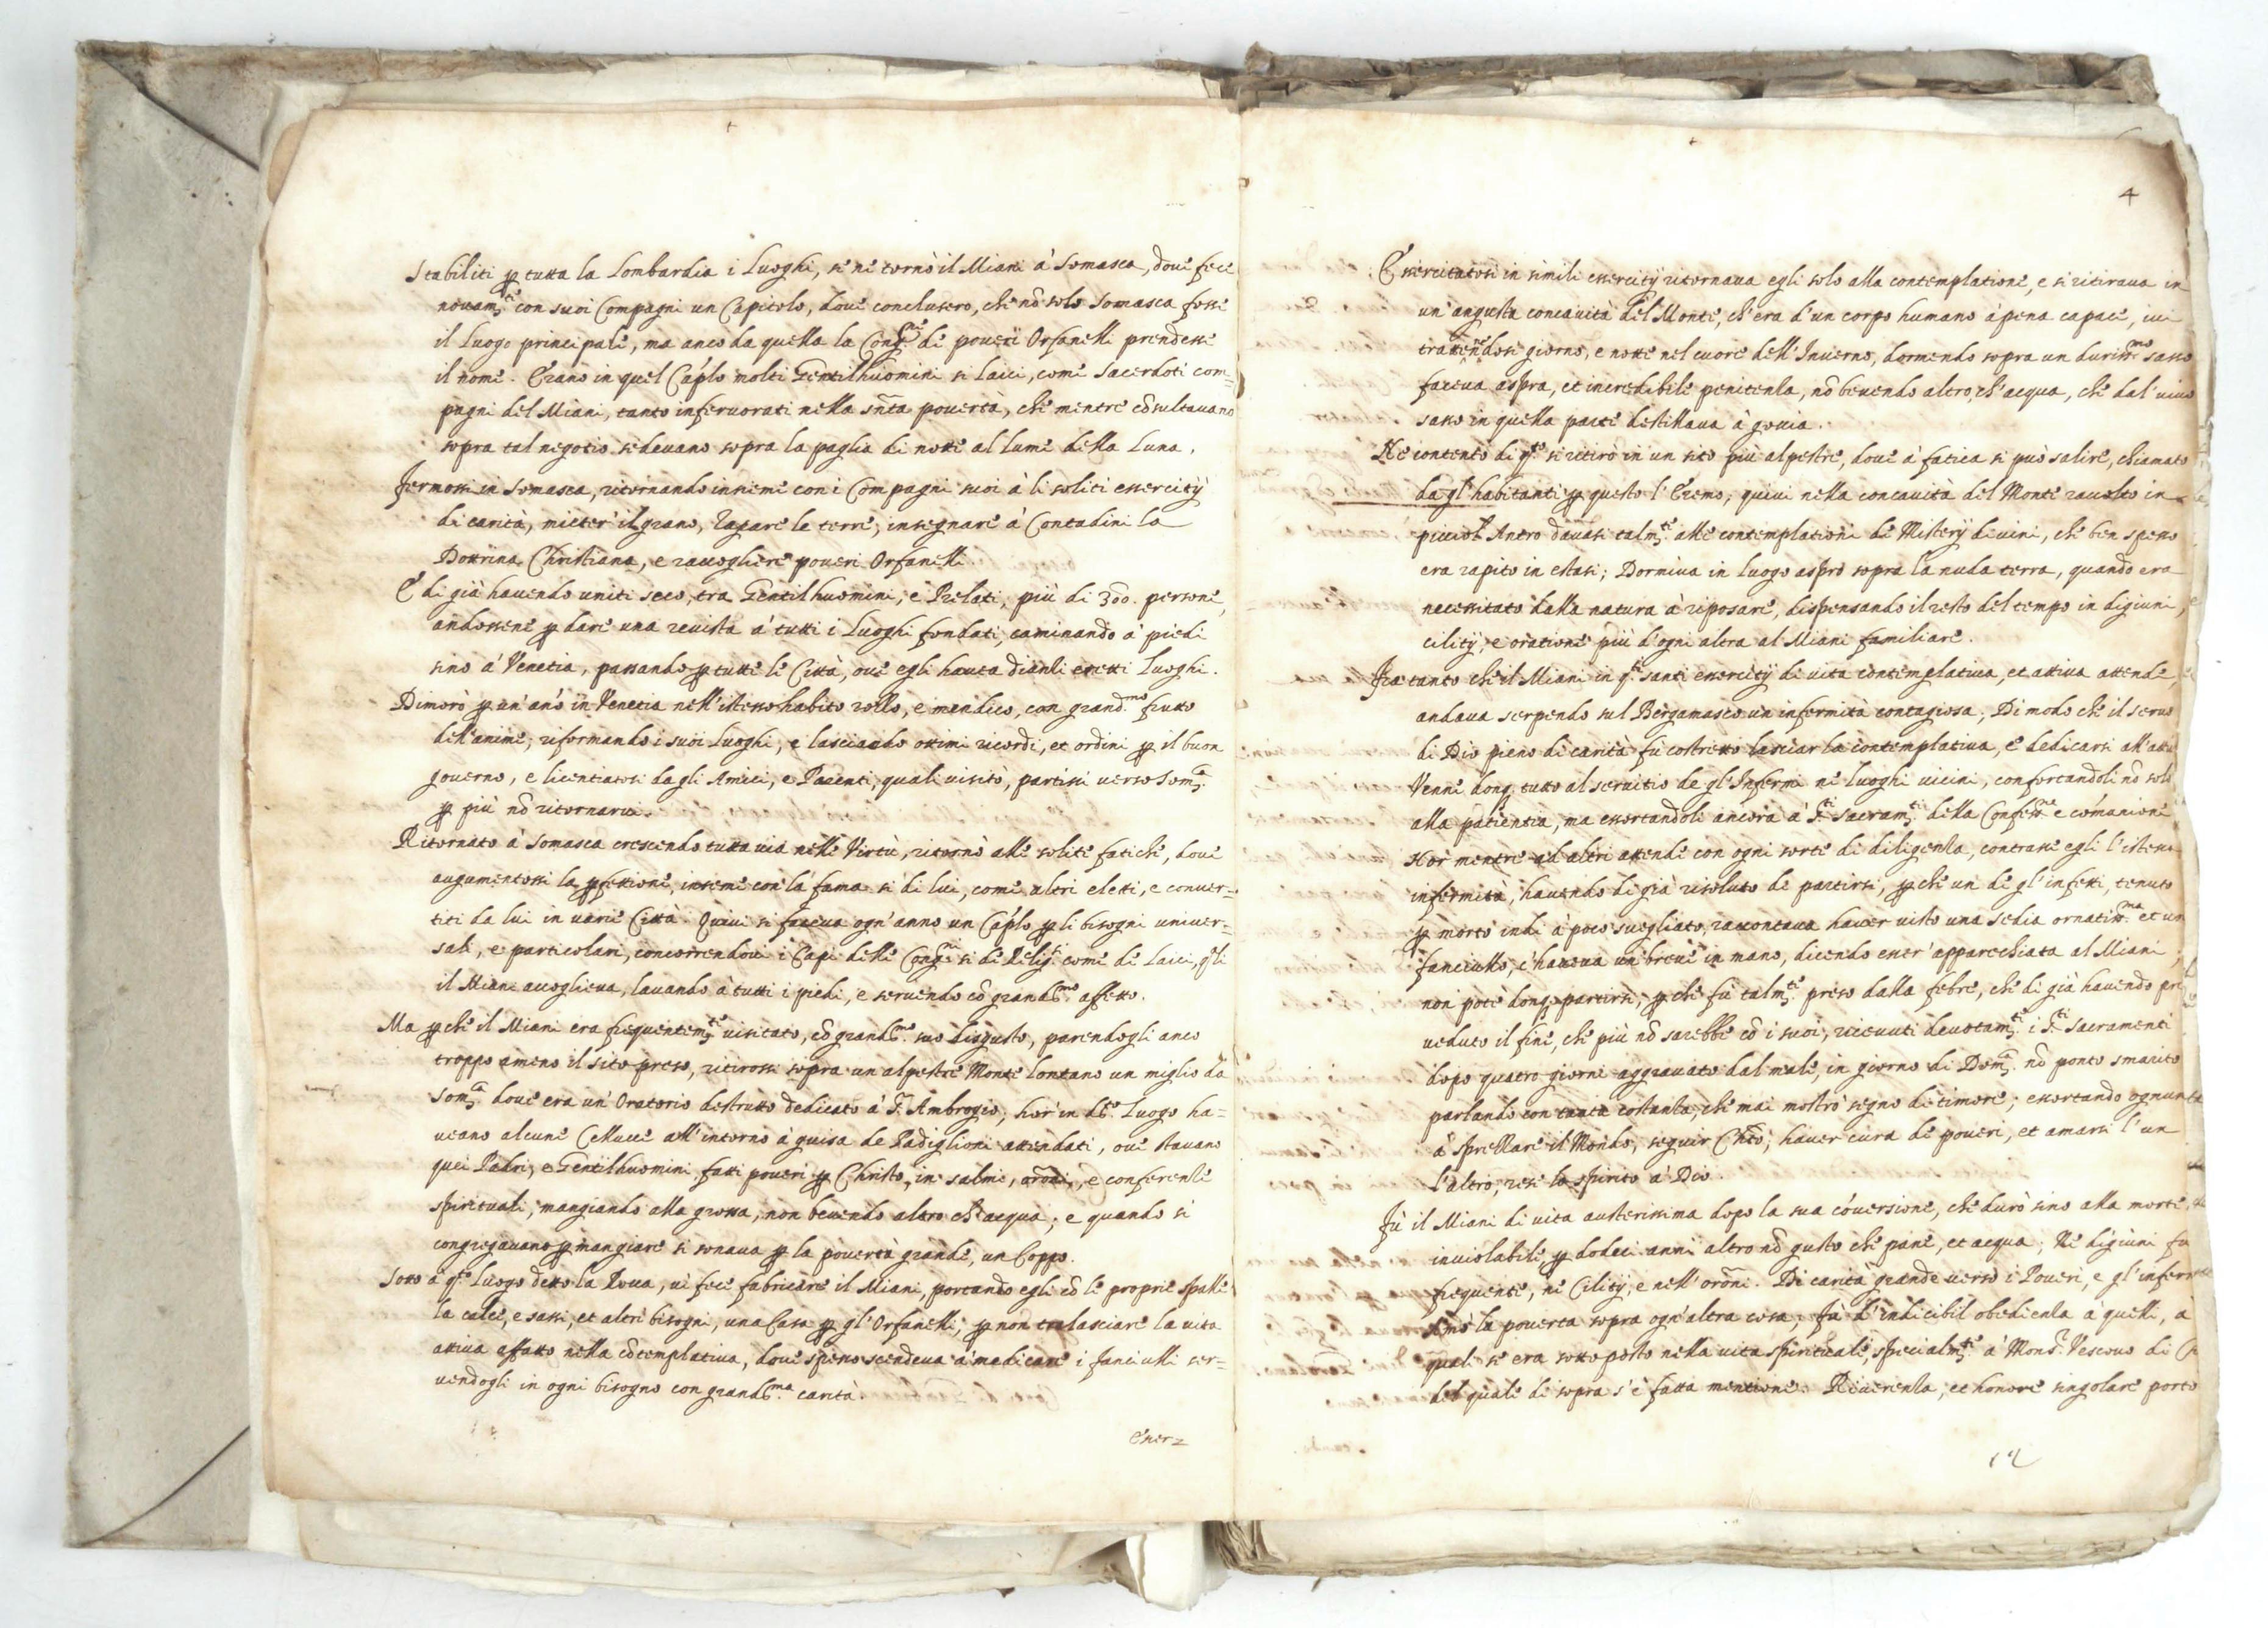 Stabiliti ꝑ tutta la Lombardia i Luoghi, se ne tornò il Miani à Somasca, dove fece
novam.te con suoi Compagni un Capitolo, dove conclusero, che nõ solo Somasca fosse
il Luogo principale, ma anco da quella la Cong.ne de poveri Orfanelli prendesse
il nome. Erano in quel Cap̃lo molti Gentilhuomini si laici, come Sacerdoti com=
pagni del Miani, tanto infervorati nella sñta povertà, che mentre cõsultavano
sopra tal negotio sedevano sopra la paglia di notte al lume della Luna.
Fermossi in Somasca, ritornando insieme con i Compagni suoi à li soliti essercitÿ
di carità, mieter' il grano, Zapare le terre, insegnare à Contadini la
Dottrina Christiana, e raccogliere poveri Orfanelli.
E di già havendo uniti seco, tra Gentilhuomini, e Prelati, più di 300. persone,
andossene ꝑ dare una revista à tutti i Luoghi fondati, caminando à piedi
sino à Venetia, passando ꝑ tutte le Città, ove egli havea dianzi eretti Luoghi.
Dimorò ꝑ un' añо in Venetia nell' istesso habito rozzo, e mendico, con grand.mo frutto
dell' anime, riformando i suoi Luoghi, e lasciando ottimi ricordi, et ordini ꝑ il buon
governo, e licentiatosi da gli Amici, e Parenti, quali visitò, partissi verso Som.a
ꝑ più nõ ritornarvi.
Ritornato à Somasca crescendo tutta via nelle Virtù, ritornò alle solite fatiche, dove
augumentossi la ꝑfettione, insieme con la fama si di lui, come altri eletti, e conver=
titi da lui in varie Città. Quivi si faceva ogn' anno un Cap̃lo ꝑ li bisogni univer=
sali, e particolari, concorrendovi i Capi delle Cong.ni si de Relig.si come de Laici, q̃li
il Miani accoglieva, lavando à tutti i piedi, e servendo cõ grand.mo affetto.
Ma ꝑche il Miani era frequentem.te visitato, cõ grand.mo suo disgusto, parendogli anco
troppo ameno il sito preso, ritirossi sopra un alpestre Monte lontano un miglio da
Som.a dove era un' Oratorio destrutto dedicato à S. Ambrogio, hor' in d.o Luogo ha=
veano alcune Cellucce all' intorno à guisa de Padiglioni attendati, ove stavano
quei Padri, e Gentilhuomini fatti poveri ꝑ Christo, in salmi, orõni, e conferenze
spirituali, mangiando alla grossa, non bevendo altro ch' acqua; e quando si
congregavano ꝑ mangiare si sonava ꝑ la povertà grande, un Coppo.
Sotto à q.to Luogo detto la Rova, vi fece fabricare il Miani, portando egli cõ le proprie spalle
la calce, e sassi, et altri bisogni, una Casa ꝑ gl' Orfanelli, ꝑ non tralasciare la vita
attiva affatto nella cõtemplativa, dove spesso scendeva à medicare i fanciulli ser=
vendogli in ogni bisogno con grand.ma carità.
Esser=
4
Essercitatosi in simili essercitÿ ritornava egli solo alla contemplatione, e si ritirava in
un' angusta concavità del Monte, ch' era d' un corpo humano à pena capace, ivi
trattenedosi giorno, e notte nel cuore dell' Inverno, dormendo sopra un duriss.mo sasso
faceva aspra, et incredibile penitenza, nõ bevendo altro, ch' acqua, che dal' vivo
sasso in quella parte destillava à goccia.
Ne contento di q.to si ritirò in un sito più alpestre, dove à fatica si può salire, chiamato
da gl' habitanti ꝑ questo l' Eremo, quivi nella concavità del Monte raccolto in
picciol Antro davasi talm.te alle contemplationi de Misterÿ divini, che ben spesso
era rapito in estasi; Dormiva in luogo aspro sopra la nuda terra, quando era
necessitato dalla natura à riposare, dispensando il resto del tempo in digiuni,
cilitÿ, e oratione più d' ogni altra al Miani familiare.
Fra tanto che il Miani in q.ti santi essercitÿ di vita contemplativa, et attiva attende,
andava serpendo sul Bergamasco un infermità contagiosa, Di modo che il servo
di Dio pieno di carità fù costretto lasciar la contemplativa, e dedicarsi all' atti
Venne donq. tutto al servitio de gl' Infermi ne' Luoghi vicini, confortandoli nõ solo
alla patientia, ma essortandoli ancora à S.ti Sacram.ti della Confess.ne e comunione
Hor mentre ad altri attende con ogni sorte di diligenza, contrasse egli l' istessa
infermità, havendo di già risoluto de partirsi, ꝑche un de gl' infetti, tenuto
ꝑ morto indi à poco svegliato, raccontava haver visto una Sedia ornatiss.ma et un
fanciullo, c' haveva un breve in mano, dicendo esser' apparecchiata al Miani,
non potè donq. partirsi, ꝑche fù talm.te preso dalla febre, che di già havendo pre
veduto il fine, che più nõ sarebbe cõ i suoi, ricevuti devotam.te i S.ti Sacramenti
dopo quatro giorni aggravato dal male, in giorno di Dom.ca nõ ponto smarito
parlando con tanta costanza, che mai mostrò segno di timore, essortando ognuno
à sprezzare il Mondo, seguir Chr̃o, haver cura de poveri, et amarsi l' un
l' altro, rese lo spirito à Dio.
Fù il Miani di vita austerissima dopo la sua cõversione, che durò sino alla morte,
inviolabile, ꝑ dodeci anni altro nõ gusto che pane, et acqua; Ne digiuni fu
frequente, ne Cilitÿ, e nell' orõni. Di carità grande verso i Poveri, e gl' infermi
Amò la povertà sopra ogn' altra cosa, fù d' indicibil obedienza à quelli, à
quali si era sottoposto nella vita spirituale, specialm.te à Mons.r Vescovo di
del quale di sopra s' è fatta mentione. Riverenza, et honore singolare porto